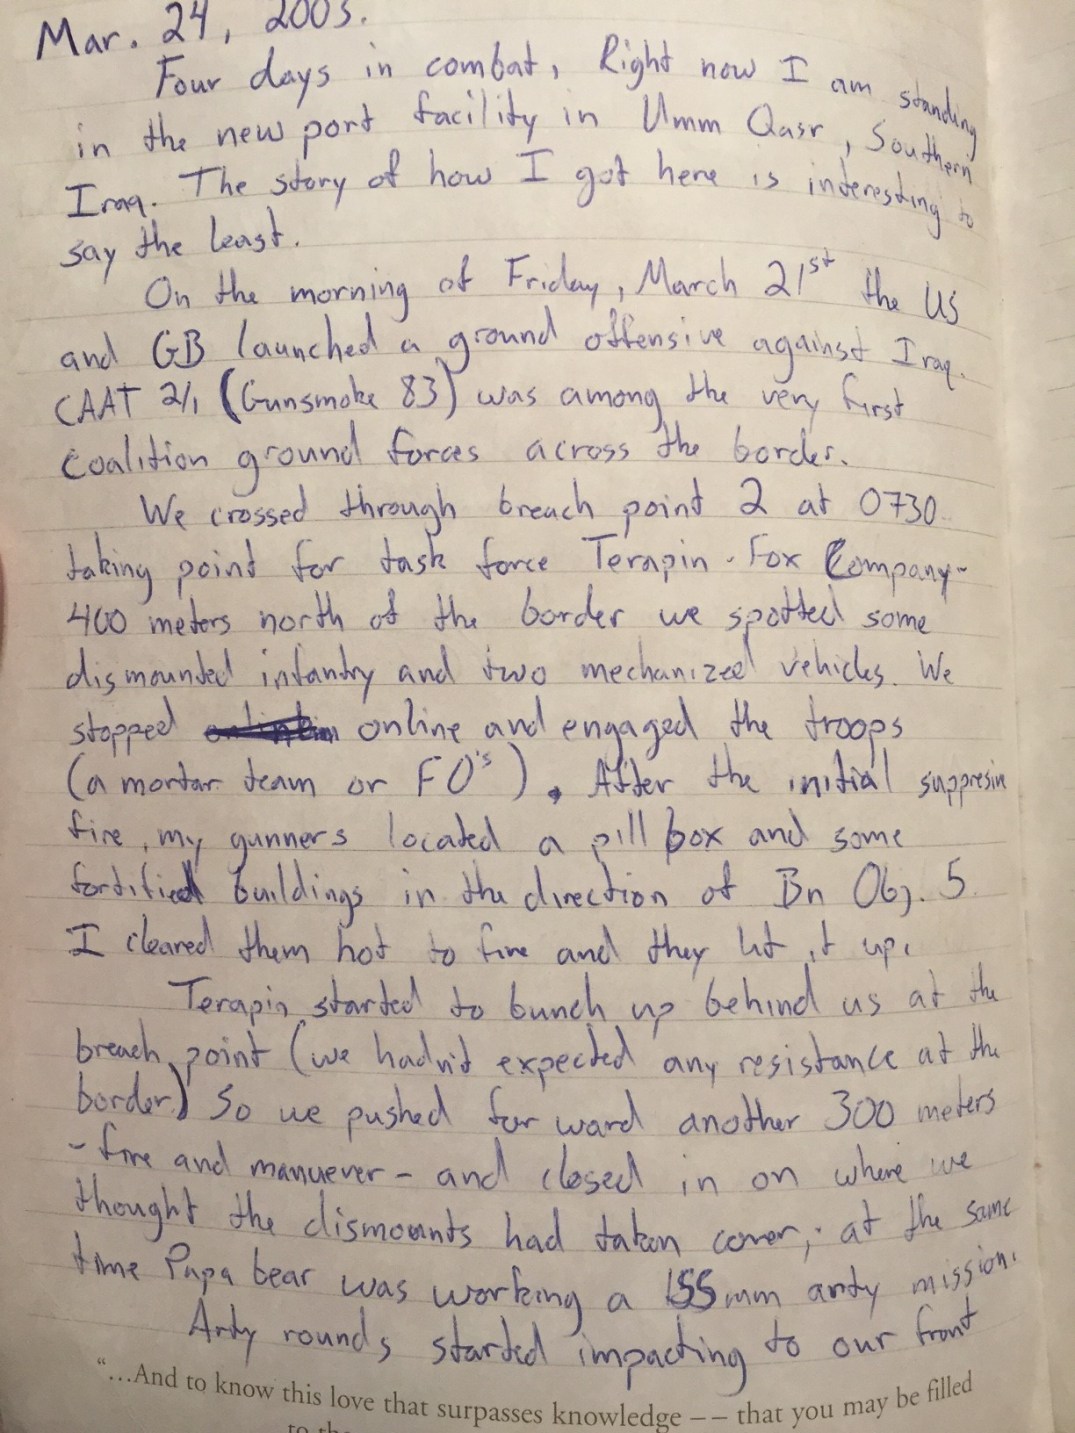 Mar. 24, 2003.
Four days in combat, Right now I am standing
in the new port facility in Umm Qasr, Southern
Iraq. The story of how I got here is interesting to
say the least.
On the morning of Friday, March 21st the US
and GB launched a ground offensive against Iraq.
CAAT 2/1 (Gunsmoke 83) was among the very first
Coalition ground forces across the border.
We crossed through breach point 2 at 0730
taking point for task force Terapin - Fox Company-
400 meters north of the border we spotted some
dismounted infantry and two mechanized vehicles. We
stopped online and engaged the troops
(a mortar team or FO's). After the initial suppresin
fire, my gunners located a pill box and some
fortified buildings in the direction of Bn Obj. 5
I cleared them hot to fire and they lit it up.
Terapin started to bunch up behind us at the
breach point (we hadn't expected any resistance at the
border) So we pushed forward another 300 meters
- fire and manuever - and closed in on where we
thought the dismounts had taken cover; at the same
time Papa bear was working a 155mm arty mission.
Arty rounds started impacting to our front
"...And to know this love that surpasses knowledge -- that you may be filled
to the